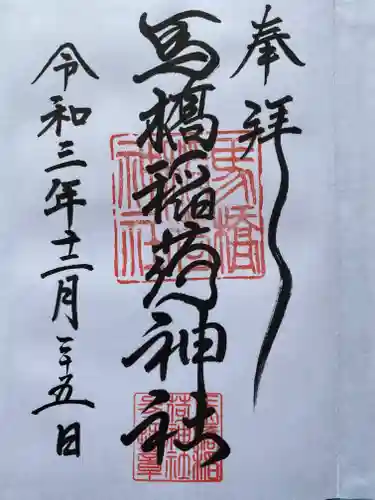 奉拝
馬橋稲荷神社
令和三年十二月二十五日